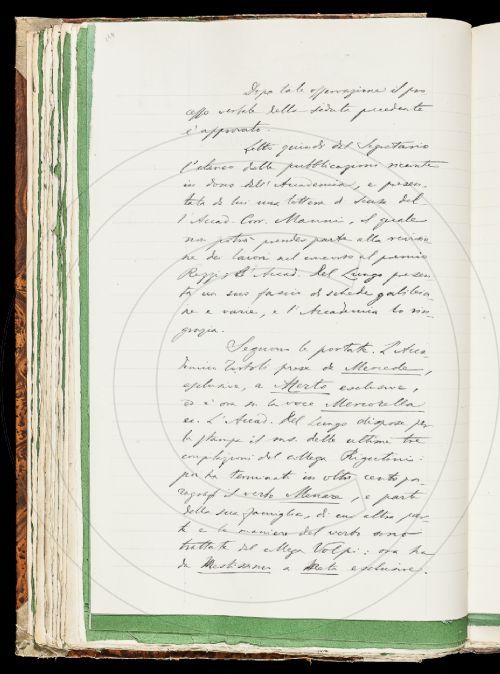 Dopo tale osservazione il pro-
cesso verbale della seduta precedente
è approvato.
Letto quindi dal Segretario
l'elenco delle pubblicazioni recate
in dono all'Accademia, e presen-
tata da lui una lettera di scusa del
l'Accad. Corr. Mannu, il quale
non potrà prender parte alla revisio-
ne dei lavori nel concorso al premio
Rezzi, l'Accad. Del Lungo presen-
ta un suo fascio di schede galileia-
ne e varie, e l'Accademia lo rin-
grazia.
Seguono le portate. L'Acca-
demico Tortoli prese da Mercede,
esclusive, a Merto esclusive,
ed è ora su la voce Mercorella
ec. L'Accad. Del Lungo dispose per
la stampa il ms. delle ultime tre
compilazioni del collega Rigutini:
poi ha terminati in otto cento pa-
ragrafi il verbo Menare, e parte
della sua famiglia, di cui altra par-
te e la maniere del verbo sono
trattate dal collega Volpi: ora ha
da a Meta esclusive.